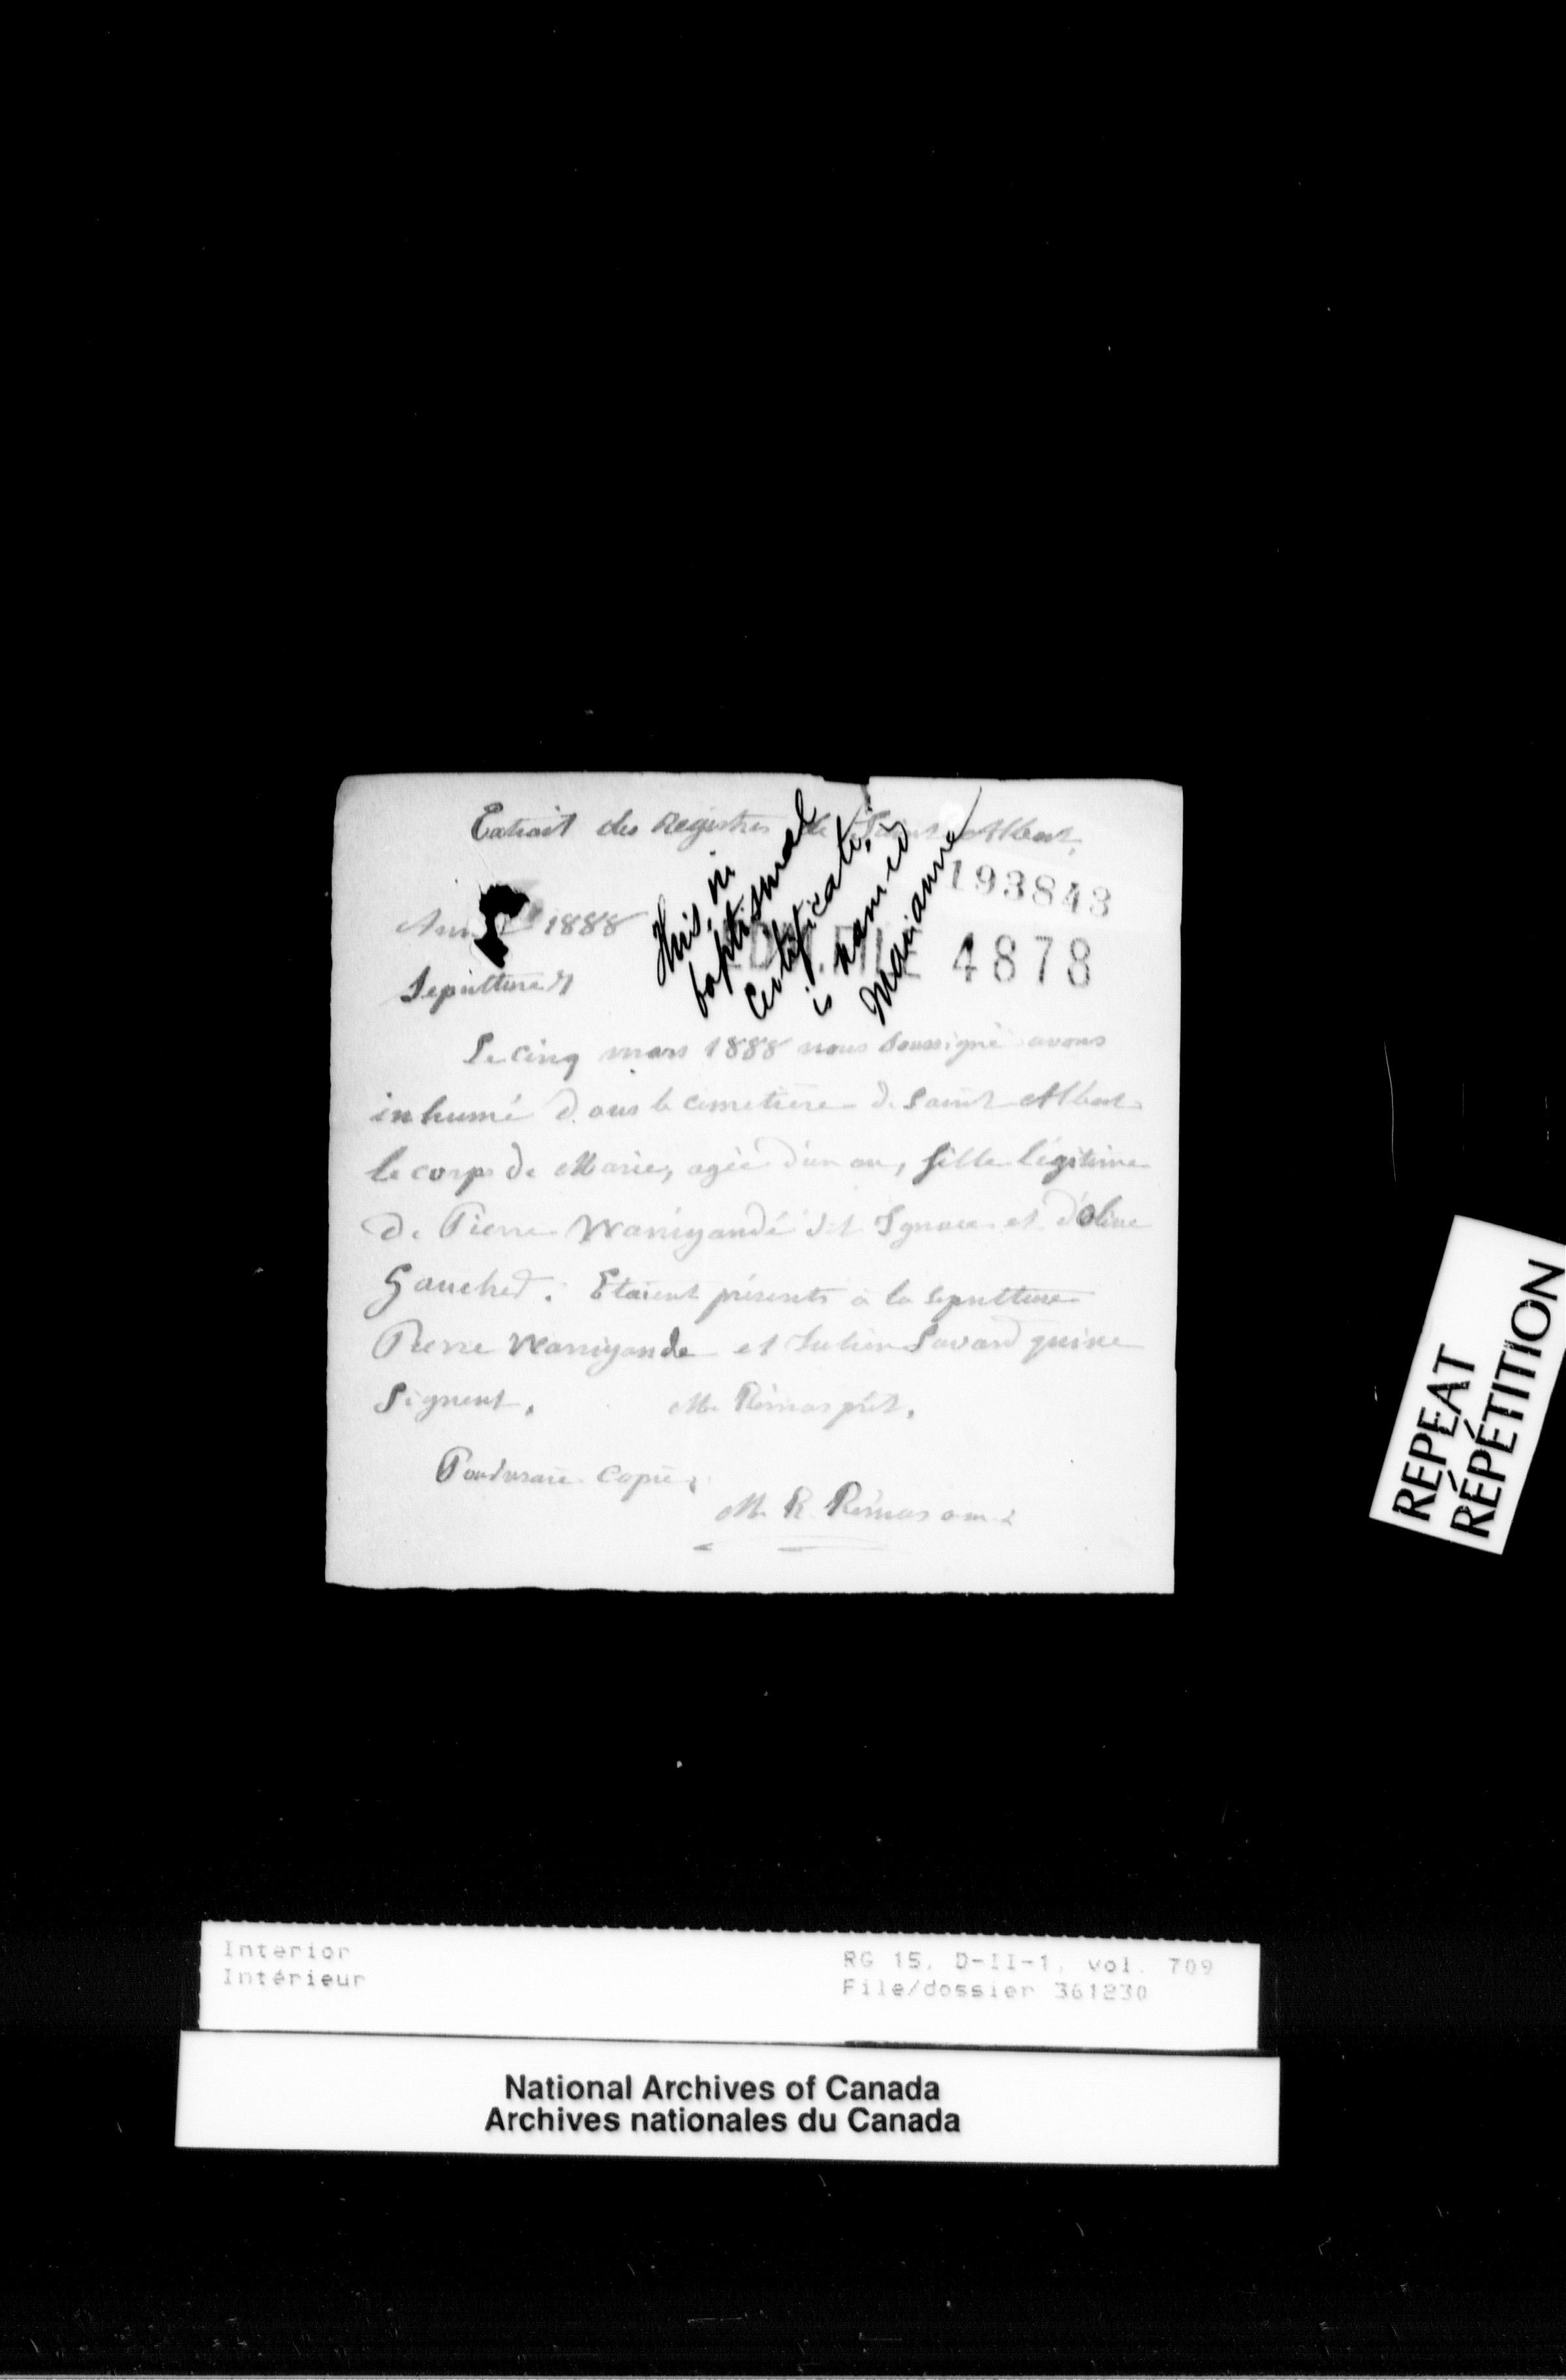 Extrait des Registres de Saint Albert,
193843
1888
4878
Sepulture
This, in
baptismal
certificate,
is named
Marianne
Le cinq mars 1888 nous soussigné avons
inhumé dans le cimetière de Saint Albert
le corps de Marie, agée d'un an, fille légitime
de Pierre Waniyandé dit Ignace et d'Olive
Gauched. Etaient présents à la sepulture
Pierre Waniyande et Julien Savard qui ne
signent. M. Rémas prêt.
Pour vraie copie,
M. R. Rémas o.m.i
REPEAT
RÉPÉTITION
Interior
Intérieur
RG 15, D-II-1, vol. 709
File/dossier 361230
National Archives of Canada
Archives nationales du Canada